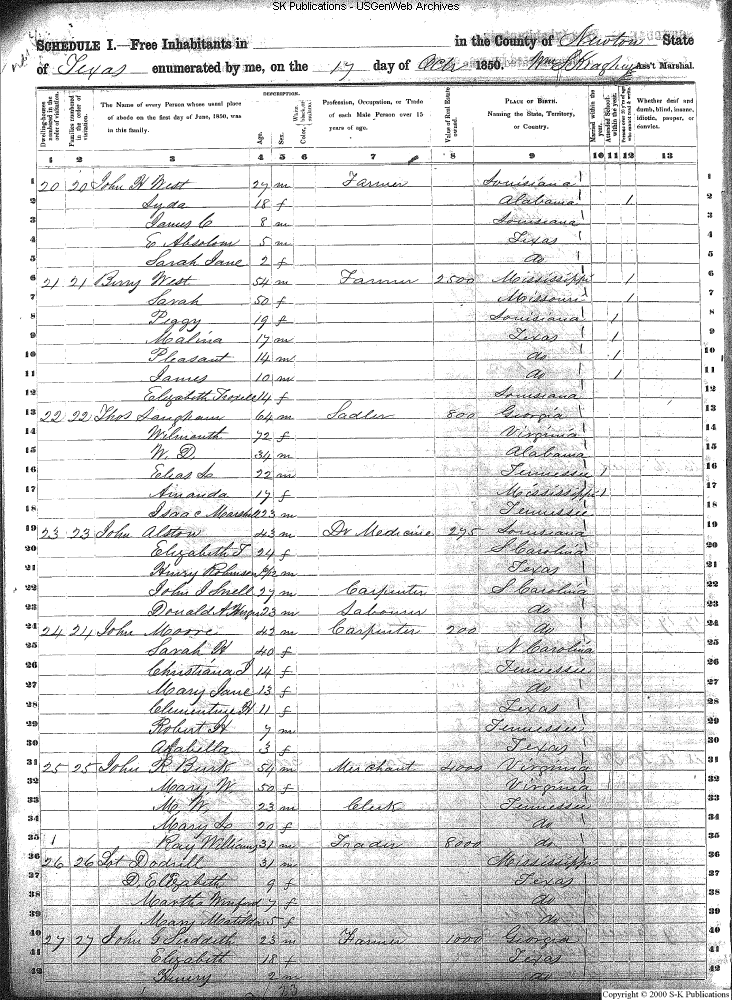 SK Publications - USGenWeb Archives
SCHEDULE I.—Free Inhabitants in in the County of Newton State
of Texas enumerated by me, on the 17 day of Octr 1850. Ass't Marshal.
Dwelling-houses numbered in the order of visitation.
Families numbered in the order of visitation.
The Name of every Person whose usual place of abode on the first day of June, 1850, was in this family.
DESCRIPTION.
Age.
Sex.
Color, White, black, or mulatto.
Profession, Occupation, or Trade of each Male Person over 15 years of age.
Value of Real Estate owned.
PLACE OF BIRTH. Naming the State, Territory, or Country.
Married within the year.
Attended School within the year.
Persons over 20 y'rs of age who cannot read & write.
Whether deaf and dumb, blind, insane, idiotic, pauper, or convict.
1 2 3 4 5 6 7 8 9 10 11 12 13
1 20 20 John H West 27 m Farmer Louisiana 1
2 Lyda 18 f Alabama 1 2
3 James C 8 m Louisiana 3
4 E Absolom 5 m Texas 4
5 Sarah Jane 2 f do 5
6 21 21 Berry West 54 m Farmer 2500 Mississippi 1 6
7 Sarah 50 f Missouri 1 7
8 Peggy 19 f Louisiana 1 8
9 Malina 17 m Texas 1 9
10 Pleasant 14 m do 1 10
11 James 10 m do 1 11
12 Elizabeth 14 f Louisiana 12
13 22 22 Thos Langham 64 m Sadler 800 Georgia 13
14 Wilmouth 72 f Virginia 14
15 W. D. 34 m Alabama 15
16 Elias L 22 m Tennessee 1 16
17 Amanda 17 f Mississippi 1 17
18 Isaac Marshall 23 m Tennessee 18
19 23 23 John Alston 43 m Dr Medicine 275 Louisiana 19
20 Elizabeth T 24 f S Carolina 20
21 Henry Robinson m Texas 21
22 John I Snell 27 m Carpenter S Carolina 22
23 Donald A 23 m Labourer do 23
24 24 24 John Moore 42 m Carpenter 200 do 24
25 Sarah H 40 f N Carolina 25
26 Christiana J 14 f Tennessee 26
27 Mary Jane 13 f do 27
28 Clementine H 11 f Texas 28
29 Robert H 7 m Tennessee 29
30 Arabella 3 f Texas 30
31 25 25 John R Burk 54 m Merchant 4000 Virginia 31
32 Mary W. 50 f Virginia 32
33 M W. 23 m Clerk Tennessee 33
34 Mary L 20 f do 34
35 1 Ray Williams 31 m Trader 8000 do 35
36 26 26 Lot Dodrill 31 m Mississippi 36
37 D. Elizabeth 9 f Texas 37
38 Martha Winford 7 f do 38
39 Mary Matilda 5 f do 39
40 27 27 John G Suddith 23 m Farmer 1000 Georgia 40
41 Elizabeth 18 f Texas 41
42 Henery 2 m do 42
23
Copyright © 2000 S-K Publications